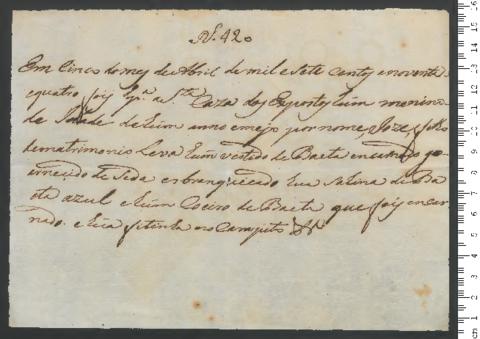 N. 420
Em Cinco do mez de Abril de mil e sete centos e noventa e
e quatro foi pª a Sta Caza dos Expostos hum menino
de Idade de hum anno e meyo por nome Joze, filho
de matrimonio Leva hum vestido de Baeta encarnado
de Seda esbranquecado hua de Ba
eta azul e hum Coeiro de Baeta que foi encar
nado. e hua fitinha no